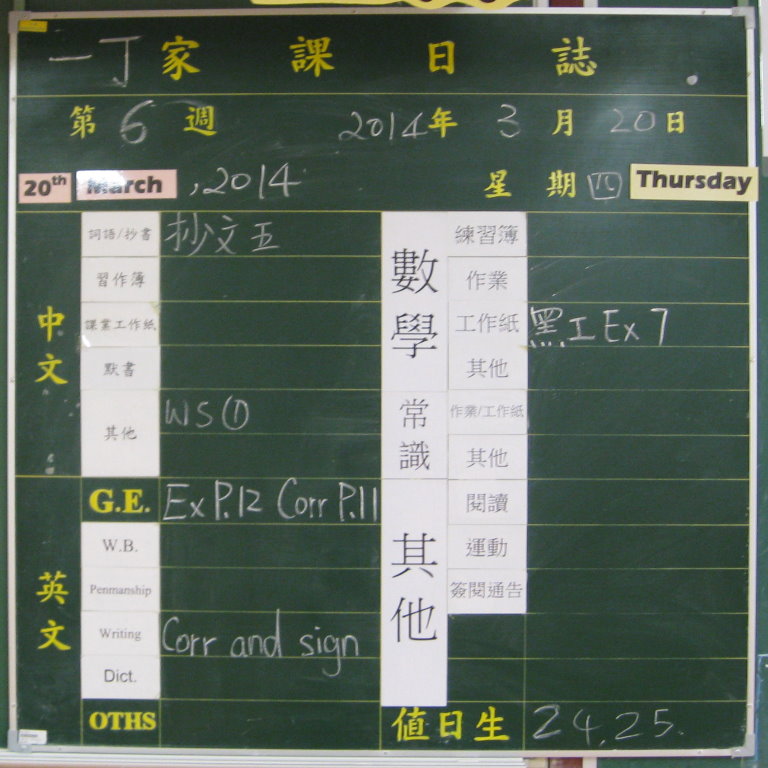 一丁家課日誌
第6週 2014年3月20日
20th March ,2014 星期四 Thursday
中文
詞語/抄書 抄文五
習作簿
課業工作紙
默書
其他 WS①
英文
G.E. Ex P.12 Corr P.11
W.B.
Penmanship
Writing Corr and sign
Dict.
OTHS
數學
練習簿
作業
工作紙 黑工Ex 7
其他
常識
作業/工作紙
其他
其他
閱讀
運動
簽閱通告
值日生 24,25.